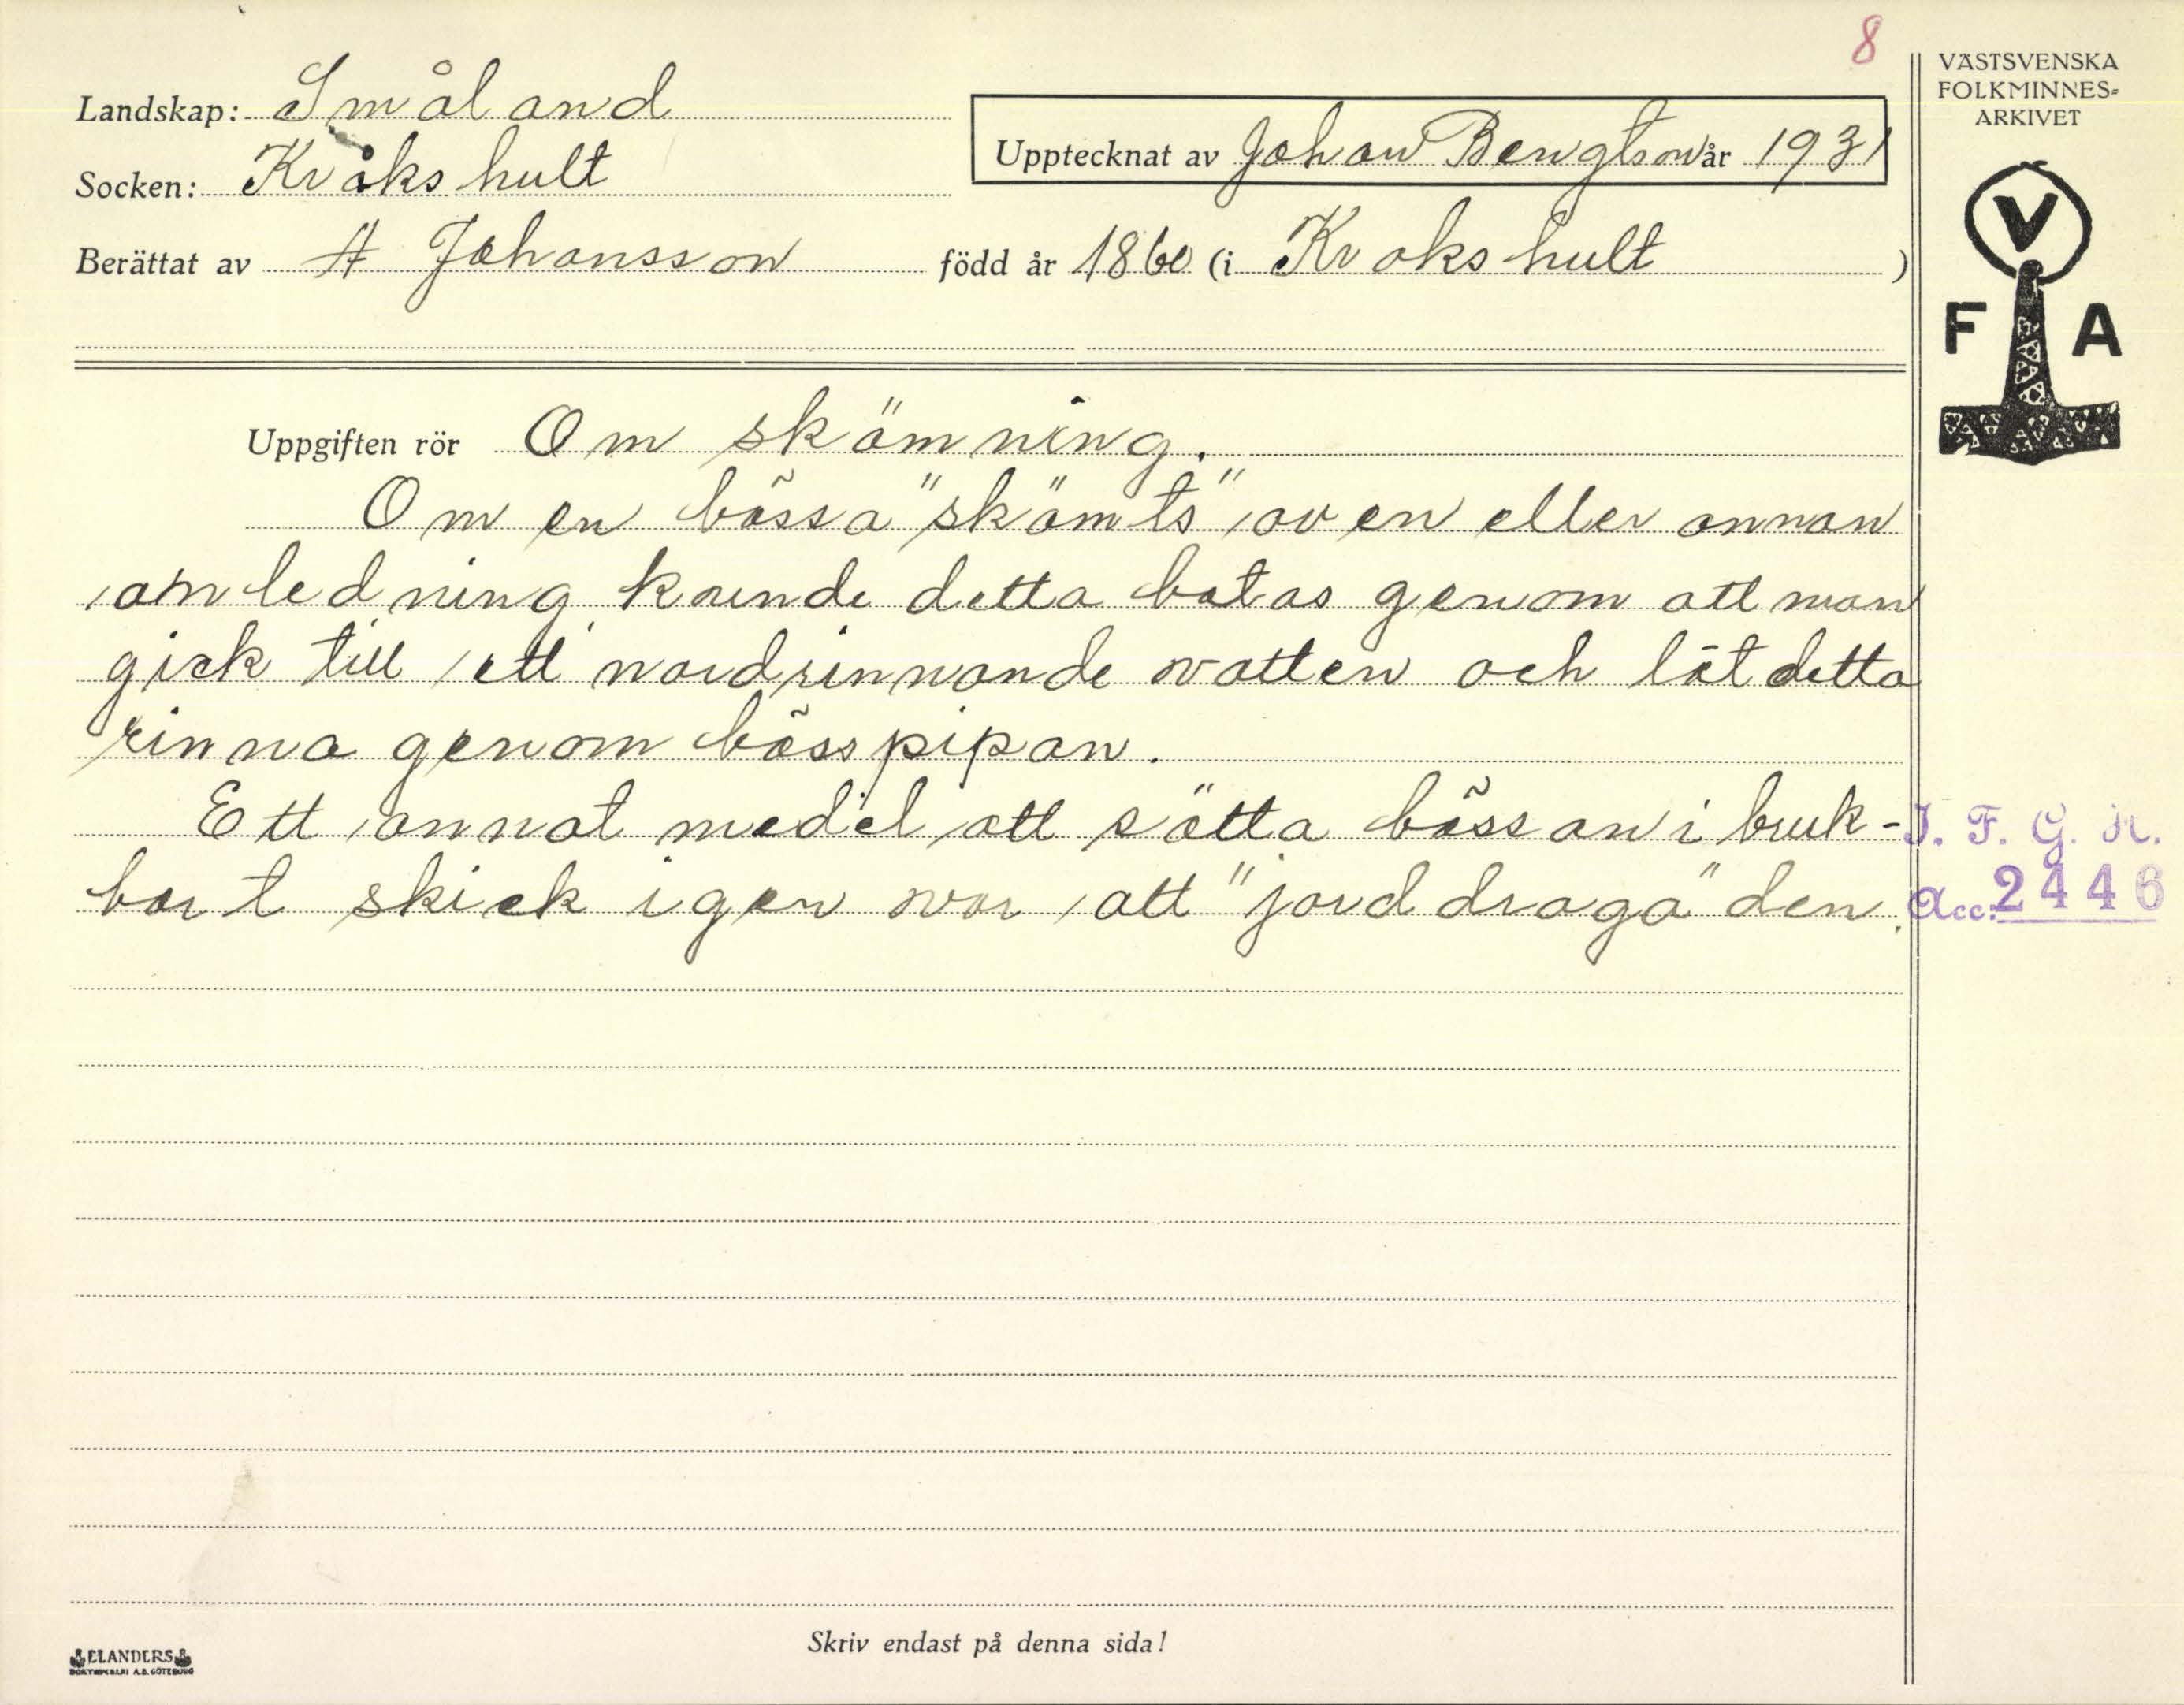 8
Landskap: Småland
Socken: Kråkshult
Upptecknat av Johan Bengtson år 1931
Berättat av A Johansson född år 1860 (i Krokshult)
VÄSTSVENSKA
FOLKMINNES-
ARKIVET
V
F A
Uppgiften rör Om skämning.
Om en bössa "skämts" av en eller annan
anledning, kunde detta botas genom att man
gick till ett nordrinnande vatten och lät detta
rinna genom bösspipan.
Ett annat medel att sätta bössan i bruk-
bart skick igen var att "jorddraga" den.
I. F. G. H.
Acc: 2446
Skriv endast på denna sida!
ELANDERS
BOKTRYCKERI A.B. GÖTEBORG